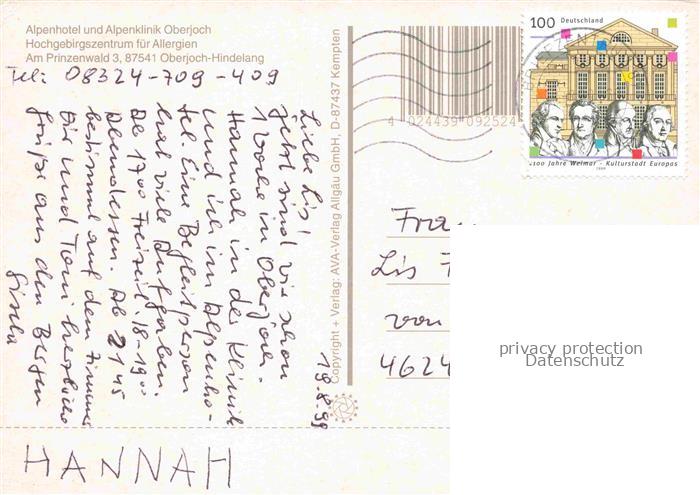 Alpenhotel und Alpenklinik Oberjoch
Hochgebirgszentrum für Allergien
Am Prinzenwald 3, 87541 Oberjoch-Hindelang
Tel: 08324-709-409
19.8.99
Liebe Lis!
Jetzt sind wir schon
1 Woche in Oberjoch.
Hannah in der Klinik
und ich im Alpenho-
tel. Eine Begleitperson
hat viele Aufgaben.
Ab 17⁰⁰ Freizeit. 18-19⁰⁰
Abendessen. Ab 21⁴⁵
bestimmt auf dem Zimmer
Dir und Toni herzliche
Grüße aus den Bergen
Gisela
HANNAH
Copyright + Verlag: AVA-Verlag Allgäu GmbH, D-87437 Kempten
4 024439 092524
100 Deutschland
100 Jahre Weimar - Kulturstadt Europas
1999
Frau
Lis
von
4624
privacy protection
Datenschutz